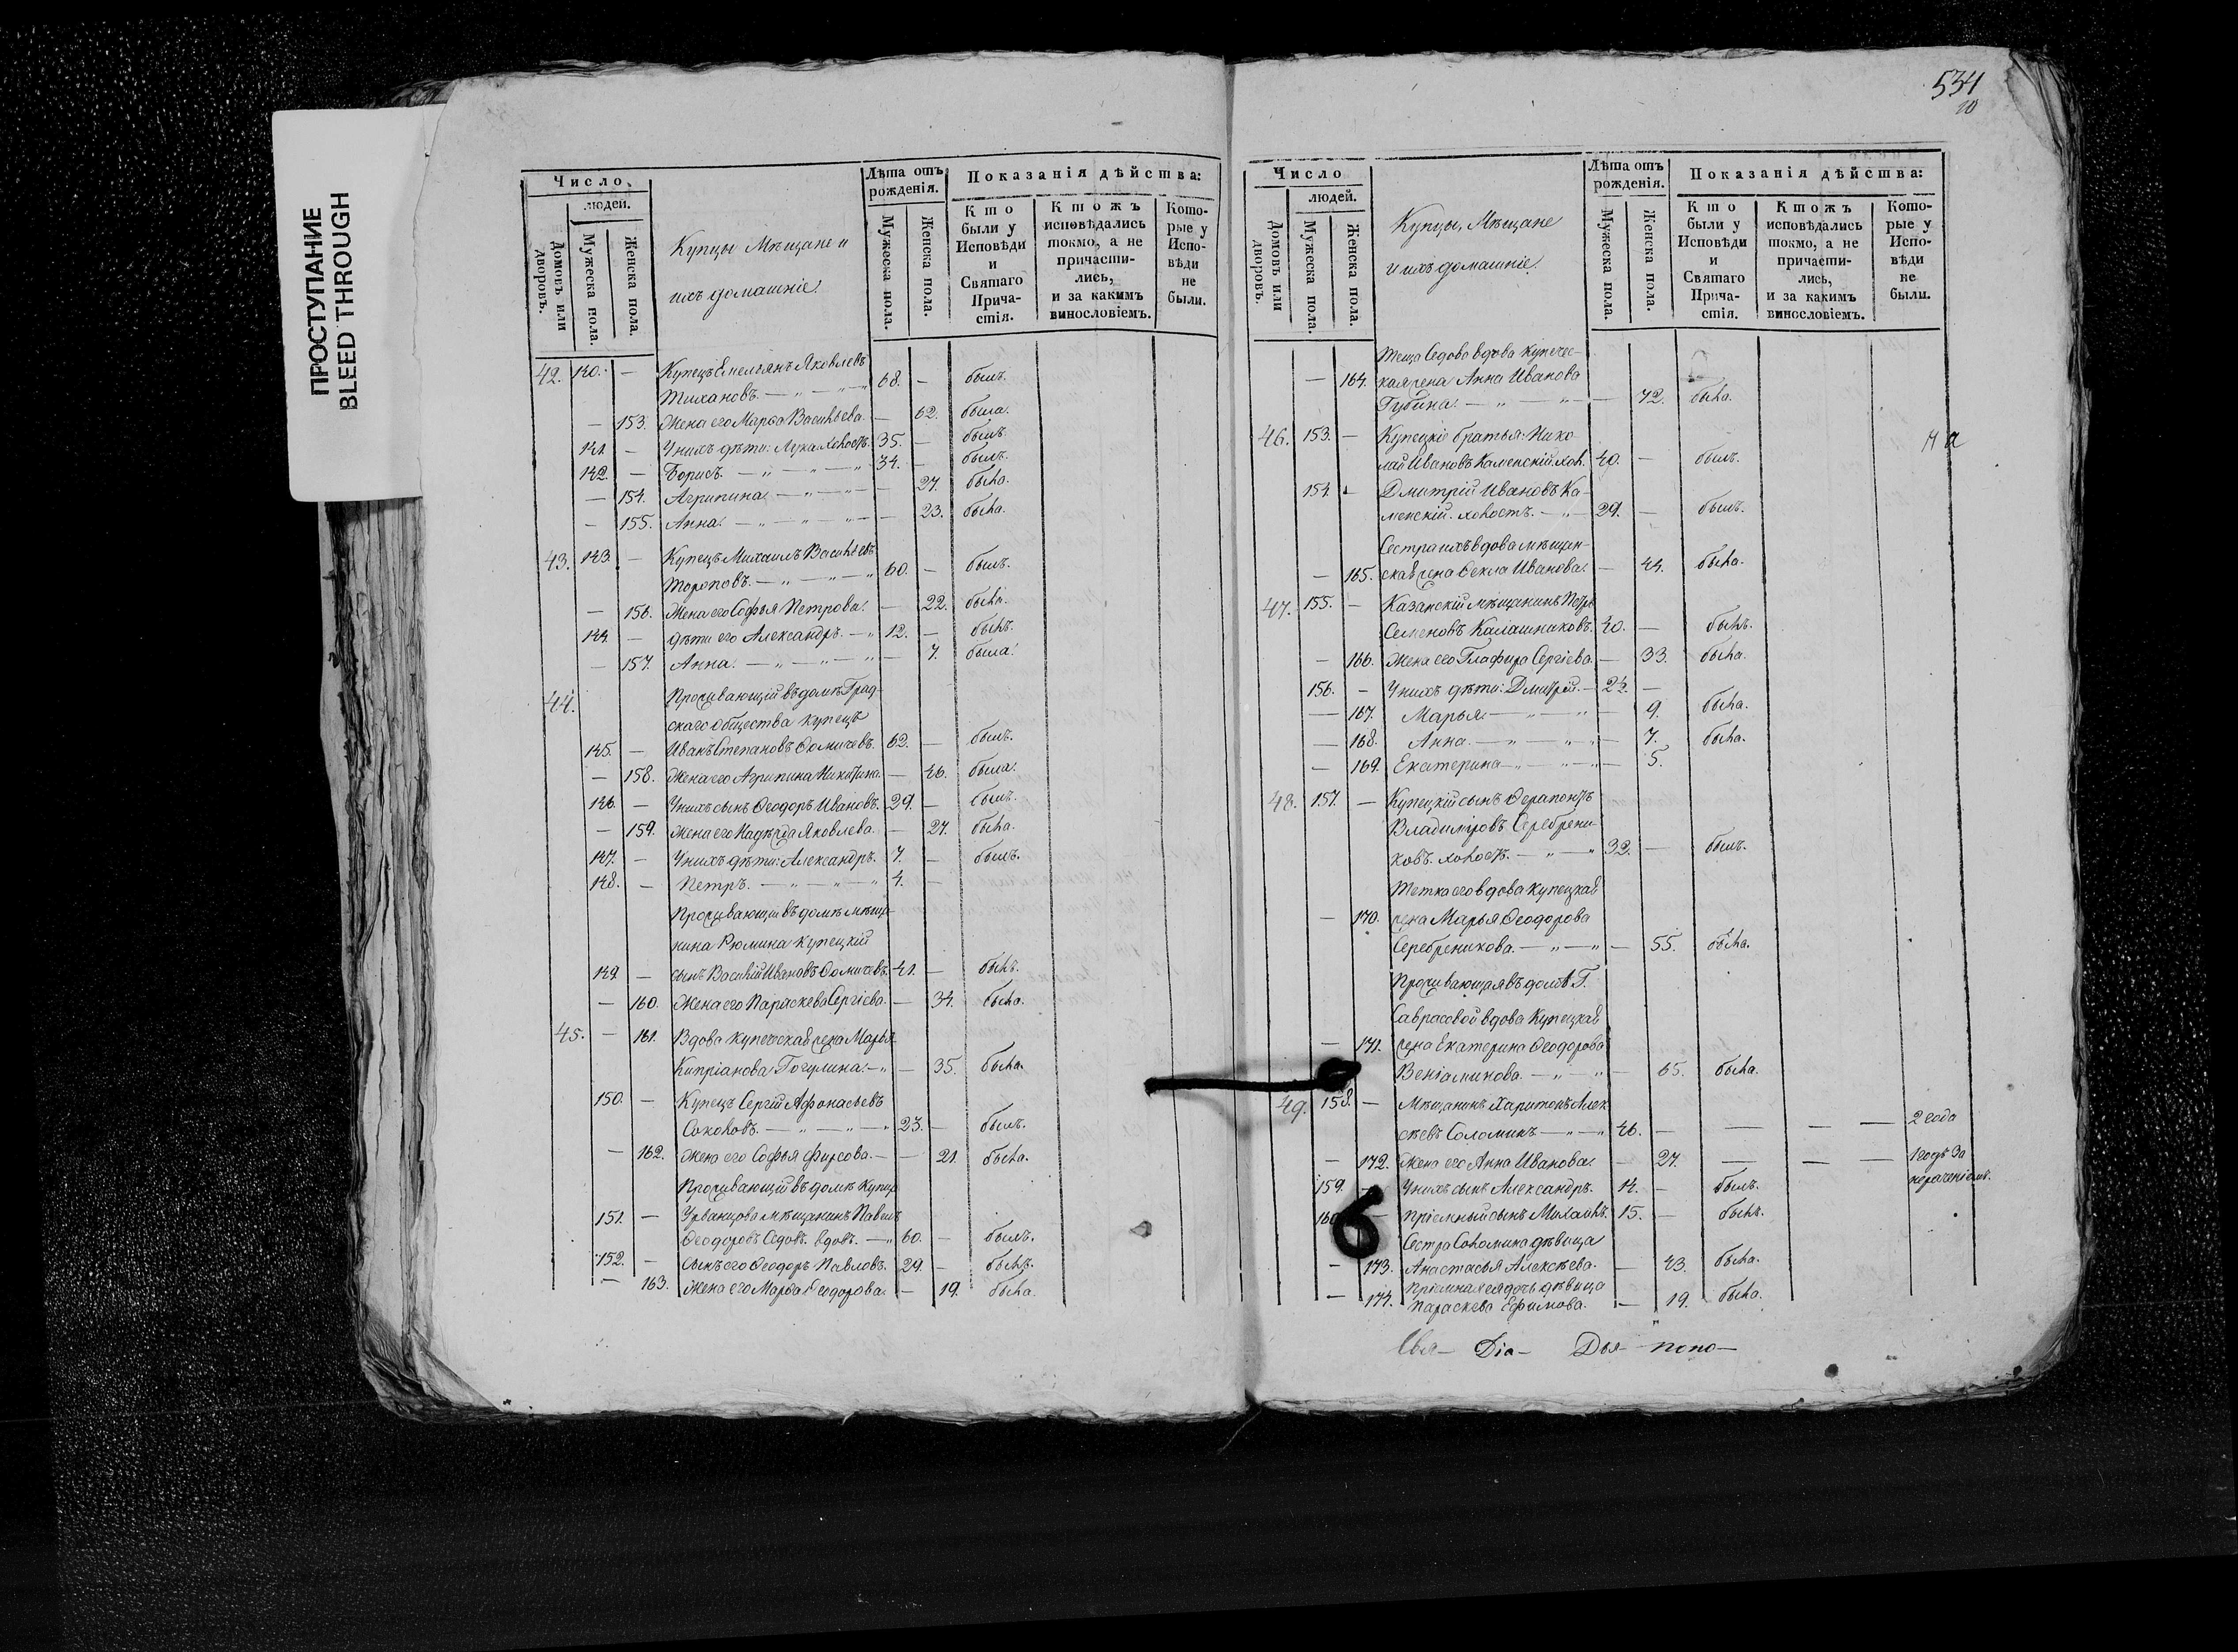 ПРОСТУПАНИЕ
BLEED THROUGH
534
10
Число
людей.
Домовъ или дворовъ.
Мужеска пола.
Женска пола.
Купцы Мѣщане и
ихъ домашніе.
Лѣта отъ рожденія.
Мужеска пола.
Женска пола.
Показанія дѣйства:
Кто были у Исповѣди и Святаго Причастія.
Ктожъ исповѣдались токмо, а не причастились, и за какимъ винословіемъ.
Которые у Исповѣди не были.
42. 140. — Купецъ Емельянъ Яковлевъ
Тихановъ. — „ — „ 68. — былъ.
— 153. Жена его Марья Васильева. — 62. была.
141. — У нихъ дѣти: Лука холостъ. 35. — былъ.
142. — Борисъ. — „ — „ — „ 34. — былъ.
— 154. Агрипина. — „ — „ — — 27. была.
— 155. Анна. — „ — „ — „ — 23. была.
43. 143. — Купецъ Михаилъ Васильевъ
Тороповъ. — „ — „ — „ 60. — былъ.
— 156. Жена его Софья Петрова. — 22. была.
144. — Дѣти его Александръ. — „ 12. — былъ.
— 157. Анна. — „ — „ — „ — 7. была.
44. Проживающій въ домѣ Град-
скаго общества купецъ
145. — Иванъ Степановъ Ѳомичевъ. 62. — былъ.
— 158. Жена его Агрипина Никитина. — 46. была.
146. — У нихъ сынъ Ѳеодоръ Ивановъ. 29. — былъ.
— 159. Жена его Надѣжда Яковлева. — 27. была.
147. — У нихъ дѣти: Александръ. 7. — былъ.
148. — Петръ. — „ — „ — „ 4. —
Проживающій въ домѣ мѣща-
нина Рюмина купецкій
149. — сынъ Василій Ивановъ Ѳомичевъ. 41. — былъ.
— 160. Жена его Параскева Сергіева. — 34. была.
45. — 161. Вдова купеческая жена Марья
Кипріанова — „ — 35. была.
150. — Купецъ Сергій Афонасьевъ
Соколовъ. — „ — „ — „ 23. — былъ.
— 162. Жена его Софья Фирсова. — — 21. была.
Проживающій въ домѣ Купца
151. — Урванцова мѣщанинъ Павелъ
Ѳеодоровъ Седовъ. вдовъ. — „ 60. — былъ.
152. — Сынъ его Ѳеодоръ Павловъ. 29. — былъ.
— 163. Жена его Марѳа Ѳеодорова. — 19. была.
Число
людей.
Домовъ или дворовъ.
Мужеска пола.
Женска пола.
Купцы, Мѣщане
и ихъ домашніе.
Лѣта отъ рожденія.
Мужеска пола.
Женска пола.
Показанія дѣйства:
Кто были у Исповѣди и Святаго Причастія.
Ктожъ исповѣдались токмо, а не причастились, и за какимъ винословіемъ.
Которые у Исповѣди не были.
Теща Седова вдова купечес-
— 164. кая жена Анна Иванова
Губина. — „ — „ — — 72. была.
46. 153. — Купецкіе братья: Нико-
лай Ивановъ Каменскій. хол. 40. — былъ.
154. — Дмитрій Ивановъ Ка-
менскій. холостъ. — „ — 29. — былъ.
Сестра ихъ вдова мѣщан-
— 165. ская жена Ѳекла Иванова. — 44. была.
47. 155. — Казанскій мѣщанинъ Петръ
Семеновъ Калашниковъ. 40. — былъ.
— 166. Жена его Глафира Сергіева. — 33. была.
156. — У нихъ дѣти: Дмитрій. — 2½. —
— 167. Марья. — „ — „ — 9. была.
— 168. Анна. — „ — „ — 7. была.
— 169. Екатерина — „ — „ — 5.
48. 157. — Купецкій сынъ Ѳерапонтъ
Владиміровъ Серебрени-
ковъ. холостъ. — „ — „ 32. — былъ.
Тетка его вдова купецкая
— 170. жена Марья Ѳеодорова
Серебреникова. — „ — „ — 55. была.
Проживающая въ домѣ Г.
Саврасовой вдова Купецкая
— 171. жена Екатерина Ѳеодорова
Веніаминова. — „ — „ — 65. была.
49. 158. — Мѣщанинъ Харитонъ Алек-
сѣевъ Соломинъ — „ — „ 46. — — — — 2 года
— 172. Жена его Анна Иванова. — 27. — — — 1 годъ за
нераченіемъ.
159. — У нихъ сынъ Александръ. 14. — былъ.
160. — Пріемный сынъ Михаилъ. 15. — былъ.
Сестра Соломина дѣвица
— 173. Анастасья Алексѣева. — 43. была.
Пріемная ея дочь дѣвица
— 174. Параскева Ефимова. — 19. была.
6
Діа — Дья — поно —